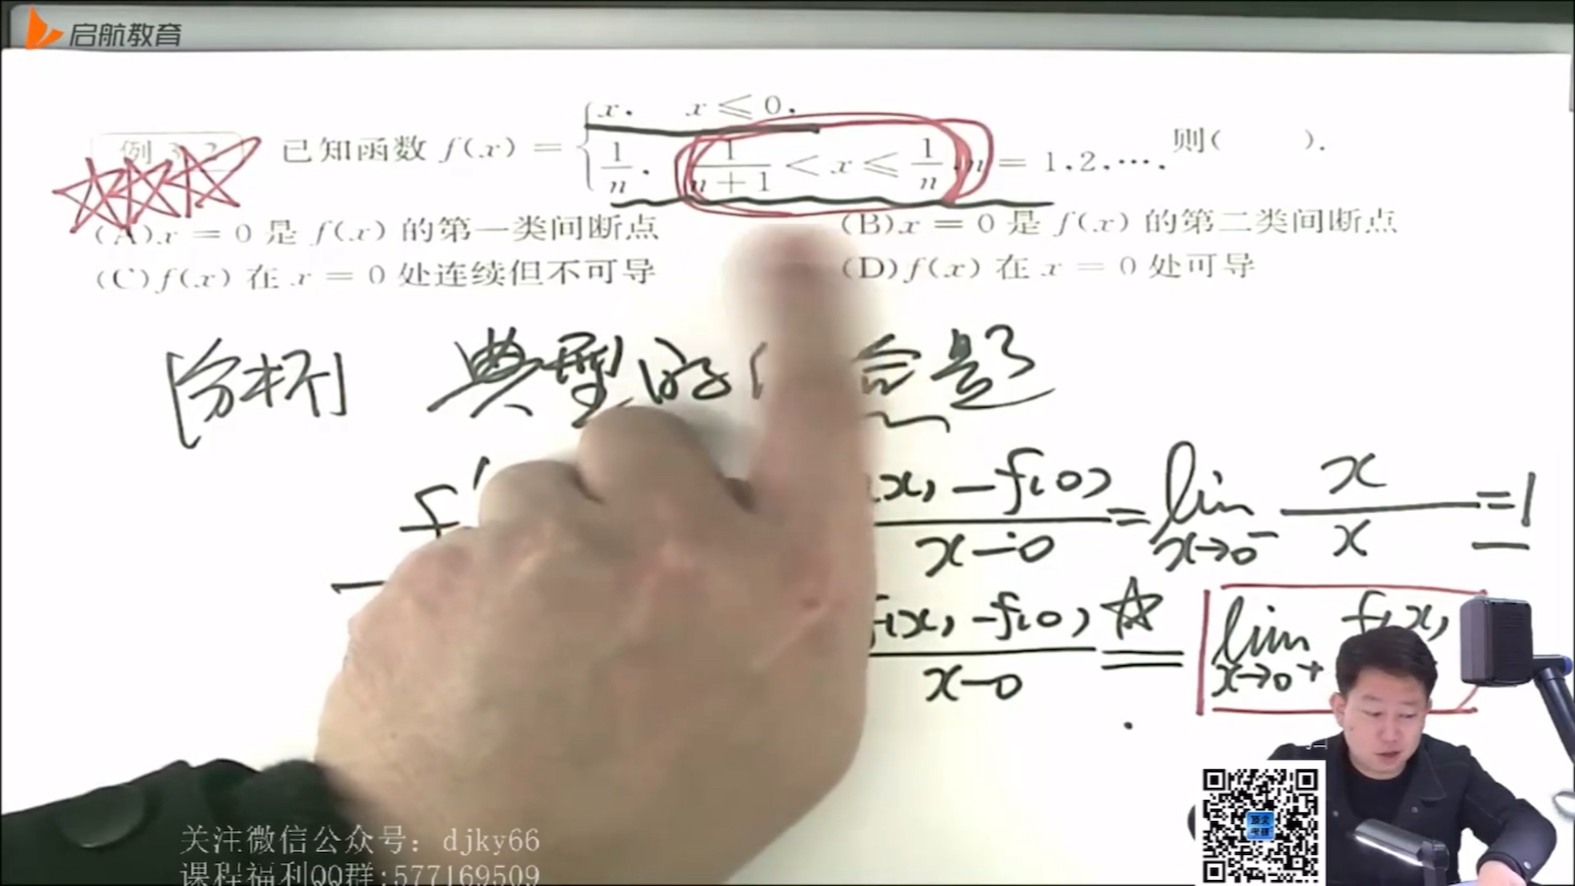 启航教育
已知函数 f(x) = { x, x ≤ 0,
1/n, 1/(n+1) < x ≤ 1/n, n = 1,2,⋯, 则( ).
(A) x = 0 是 f(x) 的第一类间断点 (B) x = 0 是 f(x) 的第二类间断点
(C) f(x) 在 x = 0 处连续但不可导 (D) f(x) 在 x = 0 处可导
[分析] 典型的 题
f' (x) - f(0) / x - 0 = lim x→0⁻ x / x = 1
f(x) - f(0) / x - 0 ☆ = lim x→0⁺ f(x)
关注微信公众号: djky66
课程福利QQ群:577169509